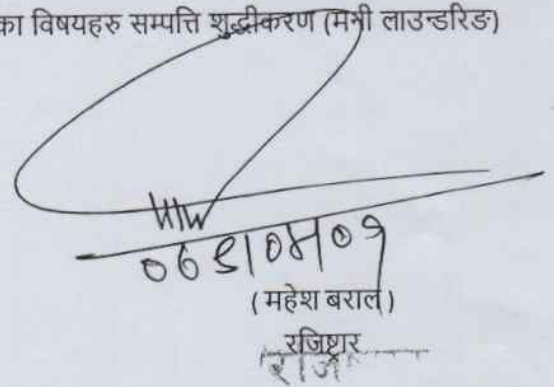 का विषयहरु सम्पत्ति शुद्धीकरण (मनी लाउन्डरिङ)
(महेश बराल)
रजिष्ट्रार